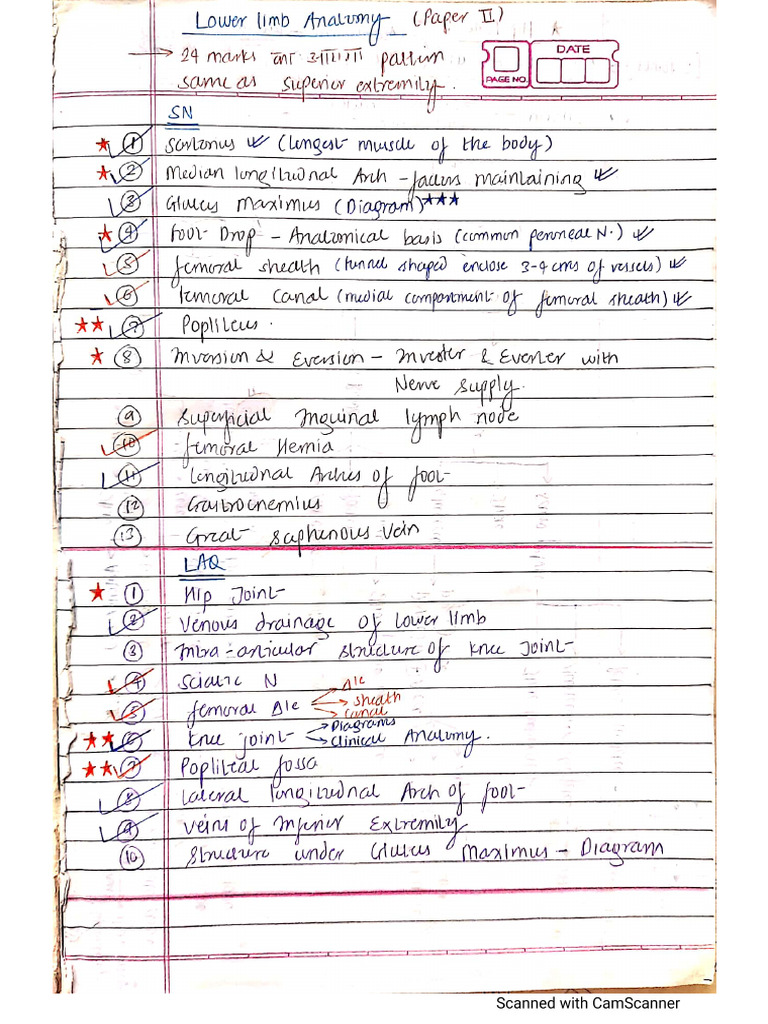 Lower limb Anatomy (Paper II)
→ 24 marks का आएगा pattern
same as superior extremity.
PAGE NO.
DATE
SN
★ 1 Sartorius (longest muscle of the body)
★ 2 Median longitudnal Arch - factors maintaining
3 Gluteus maximus (Diagram)★★★
★ 4 Foot Drop - Anatomical basis (common peroneal N.)
5 femoral sheath (funnel shaped enclose 3-4 cms of vessels)
6 femoral canal (medial compartment of femoral sheath)
★★ 7 Popliteus.
★ 8 Inversion & Eversion - Invester & Everter with
Nerve supply.
9 Superficial Inguinal lymph node
10 femoral Hernia
11 longitudnal Arches of foot
12 Gastrocnemius
13 Great saphenous vein
LAQ
★ 1 Hip Joint
2 Venous drainage of lower limb
3 Intra-articular structure of knee joint
4 Sciatic N
5 femoral Δle → Δle
→ sheath
→ canal
★★ 6 knee joint → Diagrams
→ Clinical Anatomy.
★★ 7 Popliteal fossa
8 Lateral longitudnal Arch of foot
9 Veins of Inferior Extremity
10 Structure under Gluteus Maximus - Diagram
Scanned with CamScanner